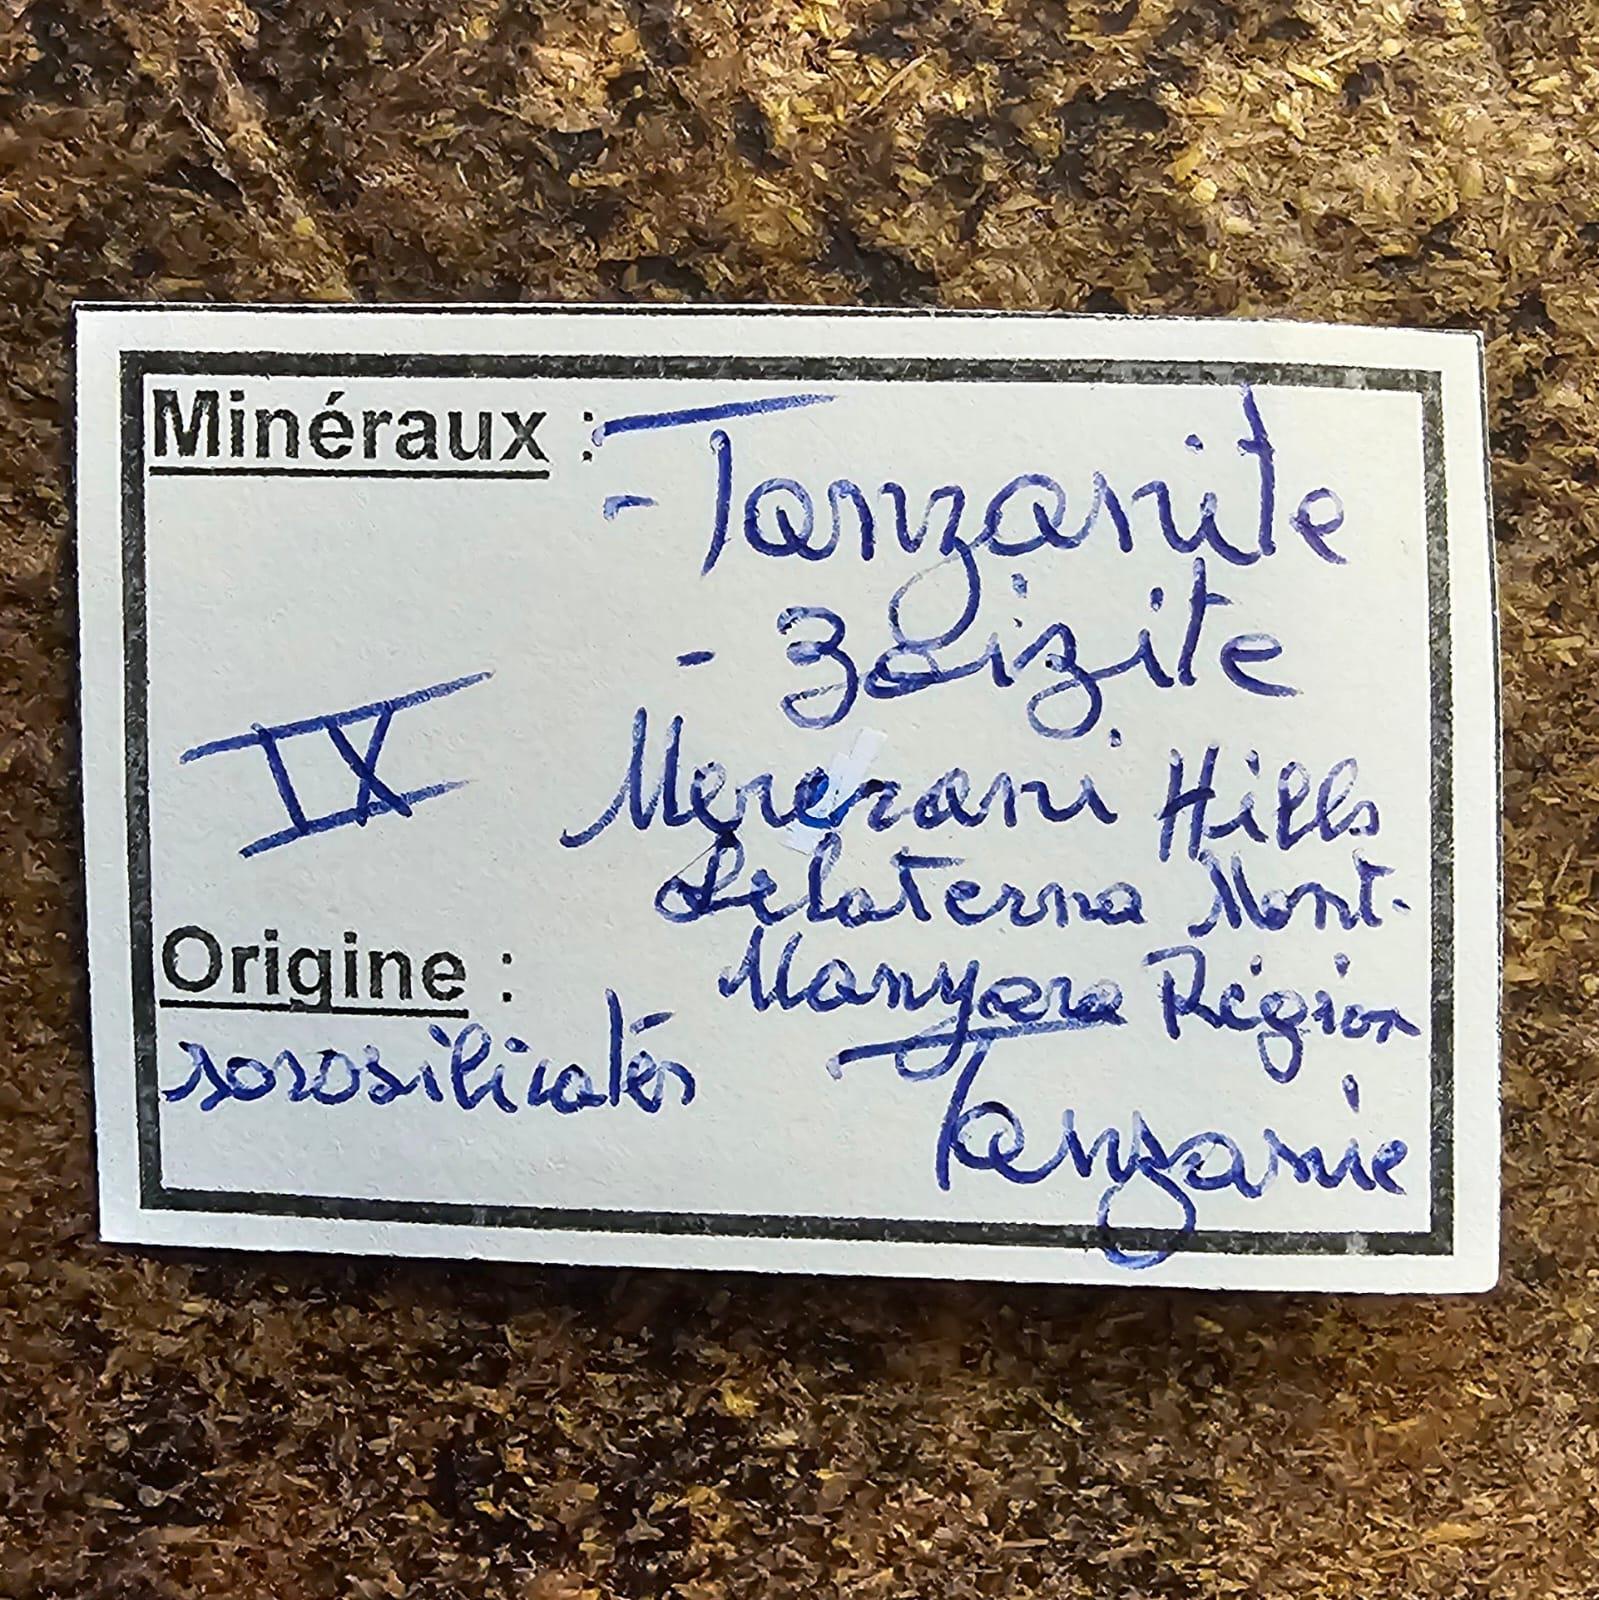 Minéraux :
- Tanzanite
- Zoizite
IX
Mererani Hills
Lelaterna Mont-
Origine :
Manyara Région
sorosilicates
Tanzanie